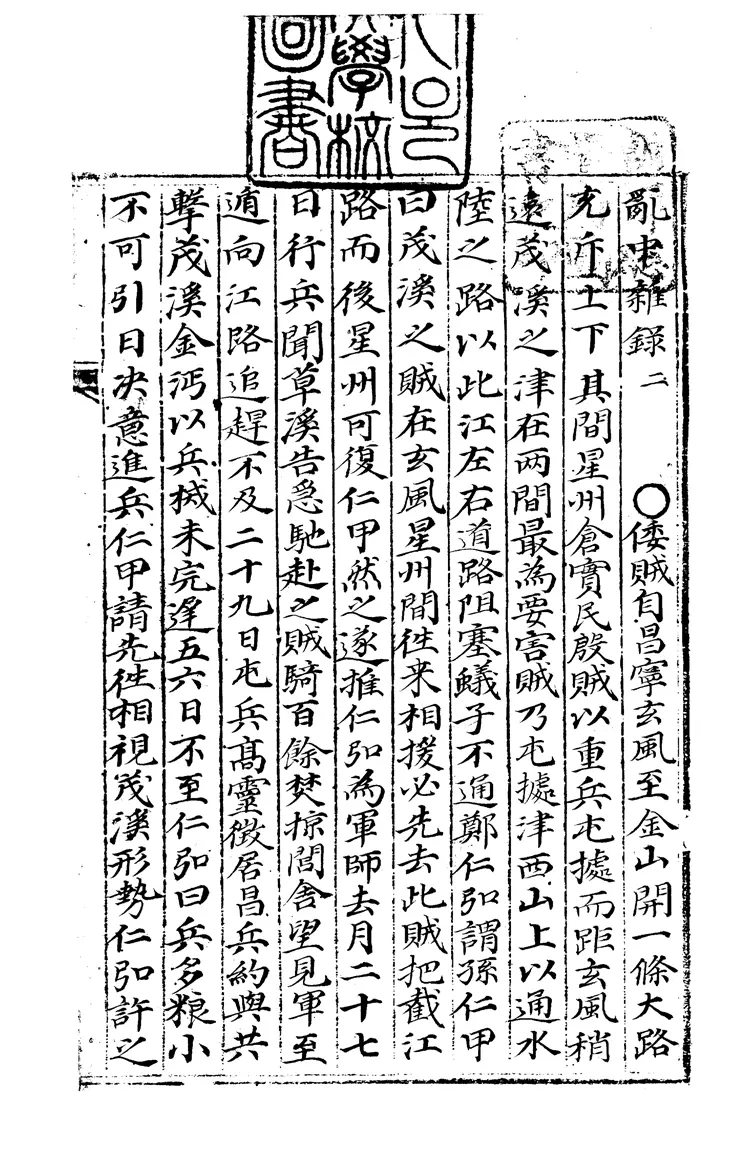 亂中雜録二 ○倭賊自昌寧玄風至金山開一條大路
充斥上下其間星州倉實民殷賊以重兵屯據而距玄風稍
遠茂溪之津在两間最為要害賊乃屯據津西山上以通水
陸之路以此江左右道路阻塞蟻子不通鄭仁弘謂孫仁甲
曰茂溪之賊在玄風星州間徃来相援必先去此賊把截江
路而後星州可復仁甲然之遂推仁弘為軍師去月二十七
日行兵聞草溪告急馳赴之賊騎百餘焚掠閭舍望見軍至
遁向江路追趕不及二十九日屯兵髙靈徵居昌兵約與共
擊茂溪金沔以兵械未完遲五六日不至仁弘曰兵多粮小
不可引日决意進兵仁甲請先徃相視茂溪形勢仁弘許之
學校
圖書